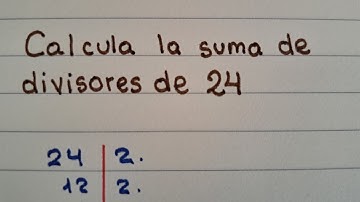 Calcula la suma de
divisores de 24
24 | 2.
12 | 2.